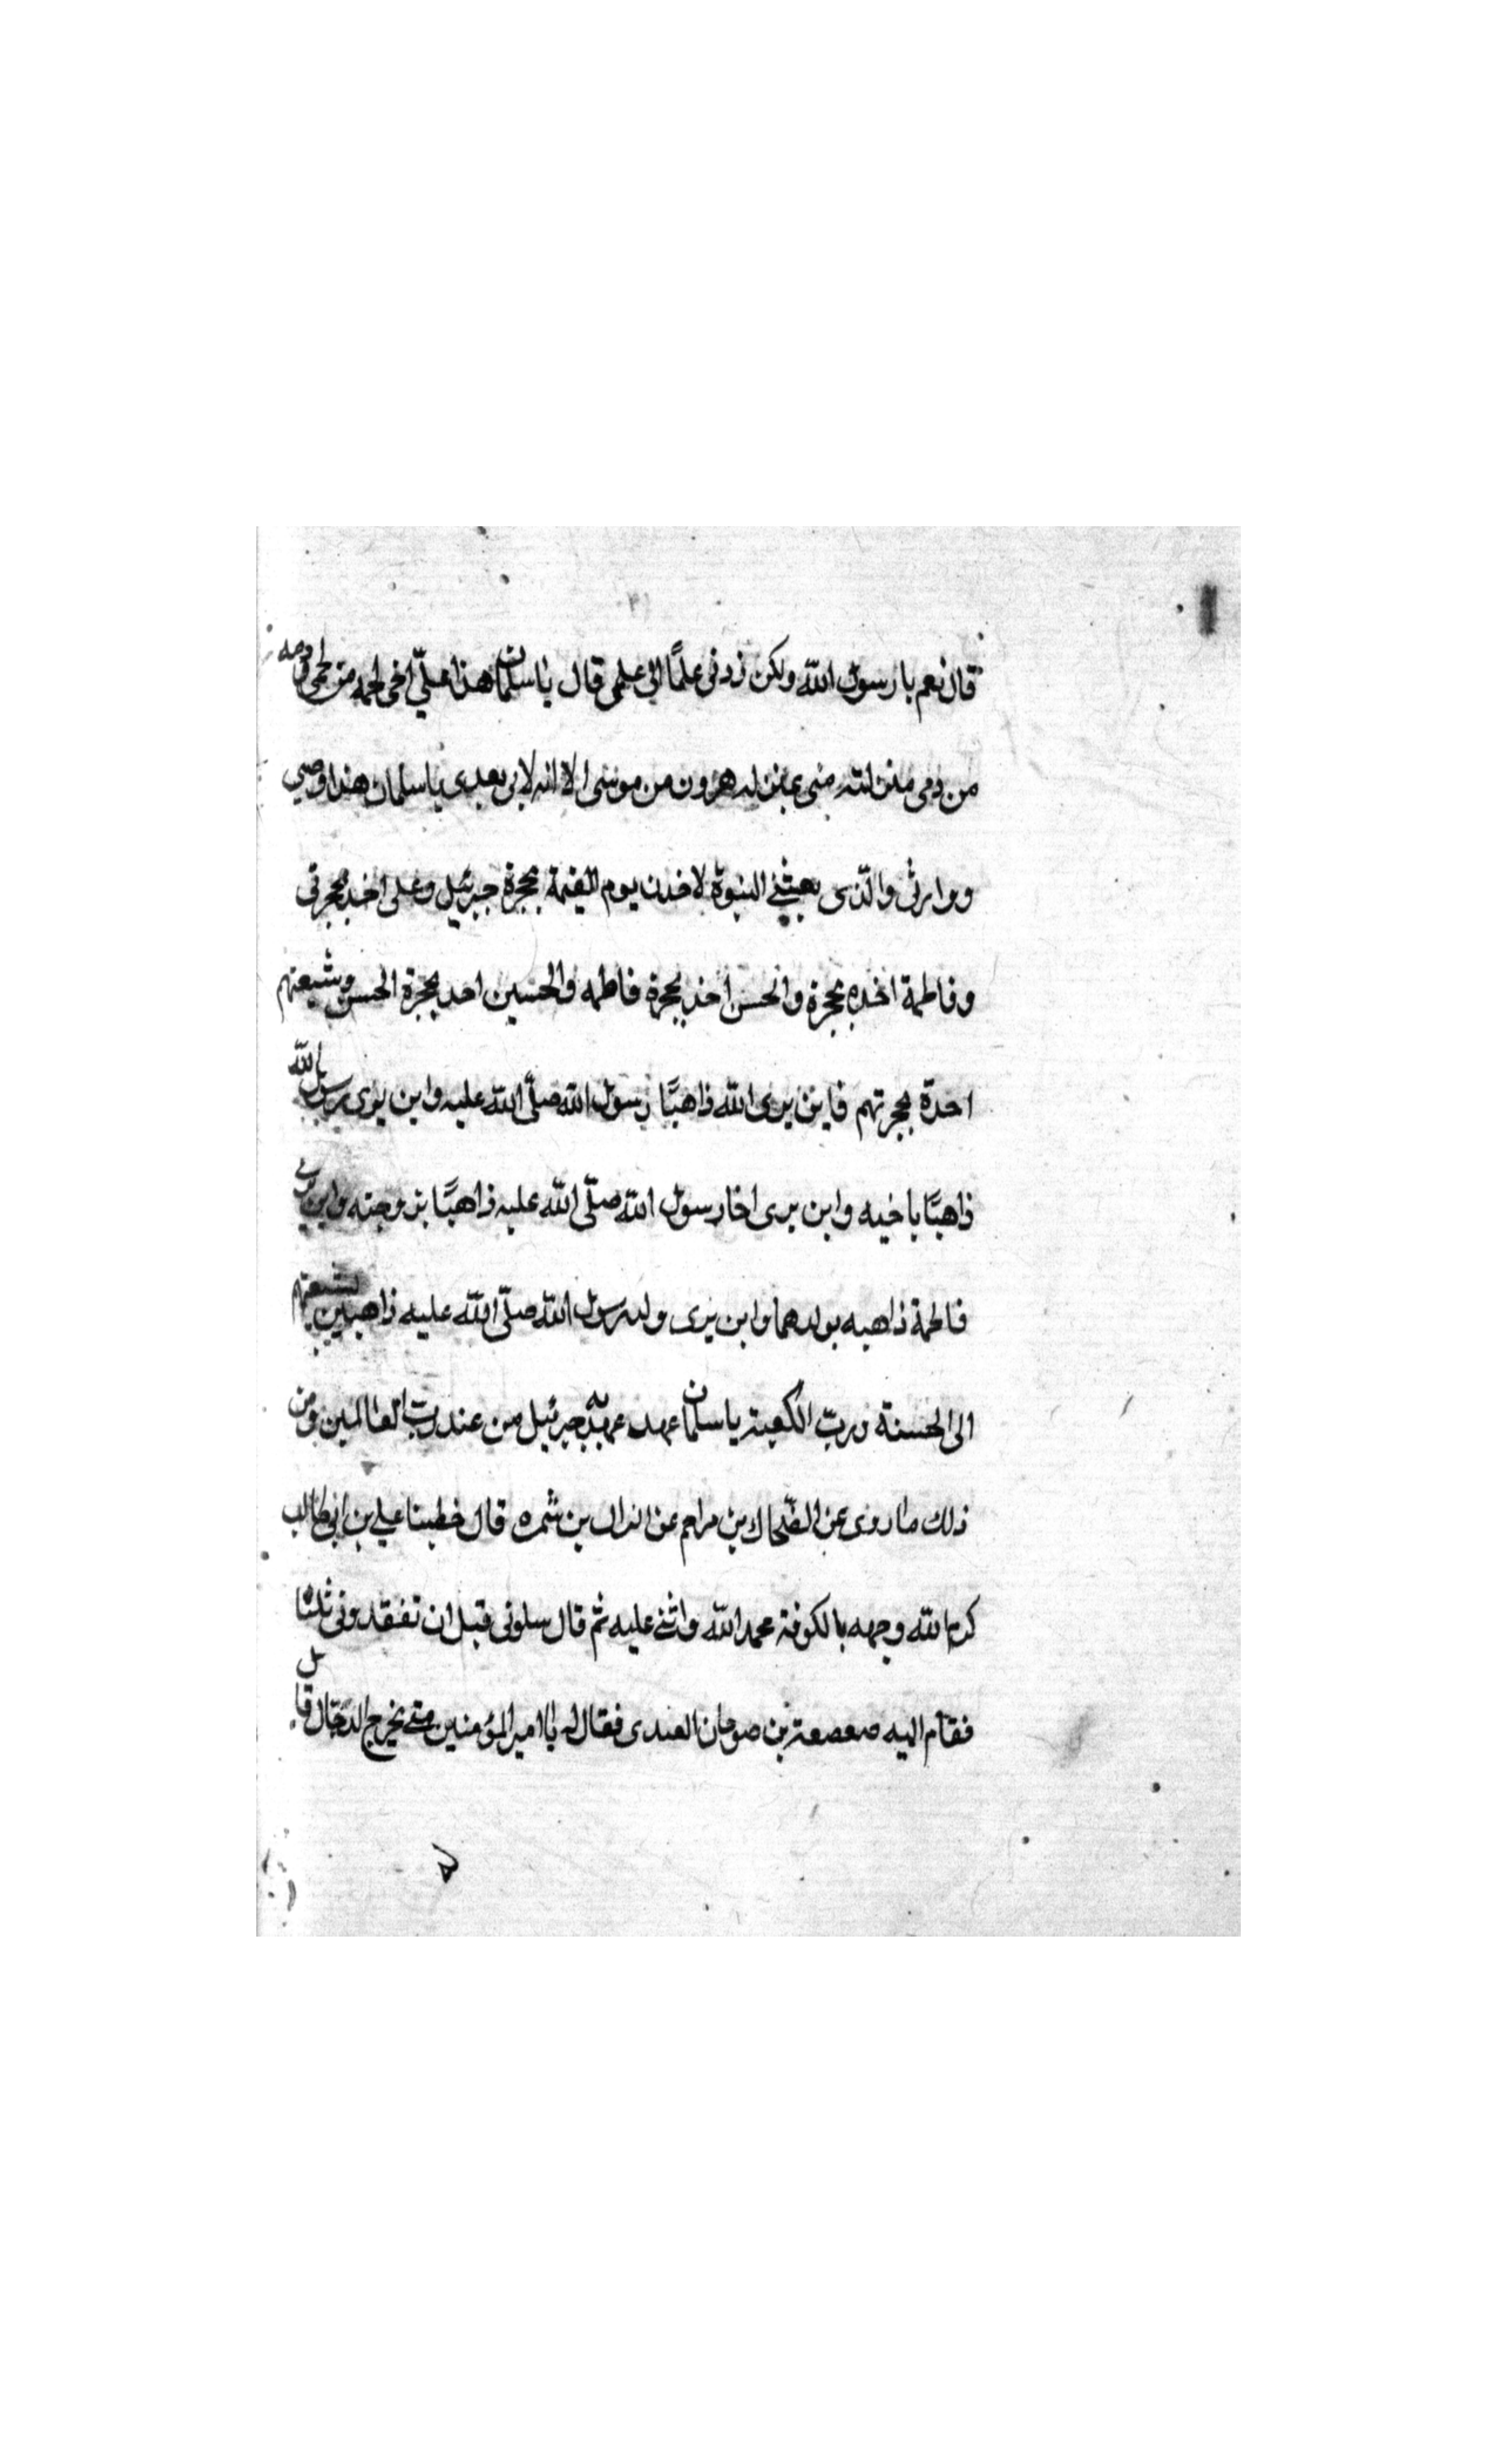 قال نعم يا رسول الله ولكن زدنى علمًا الى علمى قال يا سلمان هذا علىّ اخى لحمه من لحمى ودمه
من دمى منزلته منى بمنزله هرون من موسى الا انه لا نبى بعدى يا سلمان هذا وصيى
ووارثى والّذى بعثنى النبوة لاخذن يوم القيمة بحجزة جبرئيل وعلى اخذ بحجزتى
وفاطمة اخذه بحجزة والحسن اخذ بحجزة فاطمه والحسين احد بحجزة الحسن وشيعتهم
احدة بحجزتهم فاين يرى الله ذاهبًا رسول الله صلّى الله عليه واين يرى رسول الله
ذاهبًا باخيه واين يرى اخا رسول الله صلّى الله عليه ذاهبًا بزوجته واين يرى
فاطمة ذاهبه بولدهما واين يرى ولد رسول الله صلّى الله عليه ذاهبين بشيعتهم
الى الحسنة وربّ الكعبة يا سلمان عهد عهد به جبرئيل من عند ربّ العالمين ومن
ذلك ما روى عن الضّحاك بن مزاحم عن النزال بن سمره قال خطبنا على بن ابى طالب
كرم الله وجهه بالكوفة محمد الله واثنى عليه ثم قال سلونى قبل ان تفقدونى ثلثا
فقام اليه صعصعة بن صوحان العبدى فقال له يا امير المؤمنين متى يخرج الدجّال قال